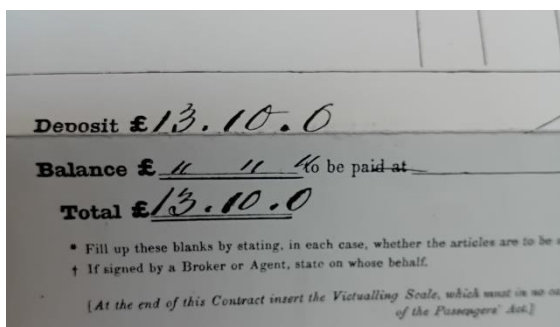 Deposit £13.10.0
Balance £ " " " to be paid at
Total £13.10.0
* Fill up these blanks by stating, in each case, whether the articles are to be
† If signed by a Broker or Agent, state on whose behalf.
[At the end of this Contract insert the Victualling Scale, which must in no
of the Passengers' Act.]